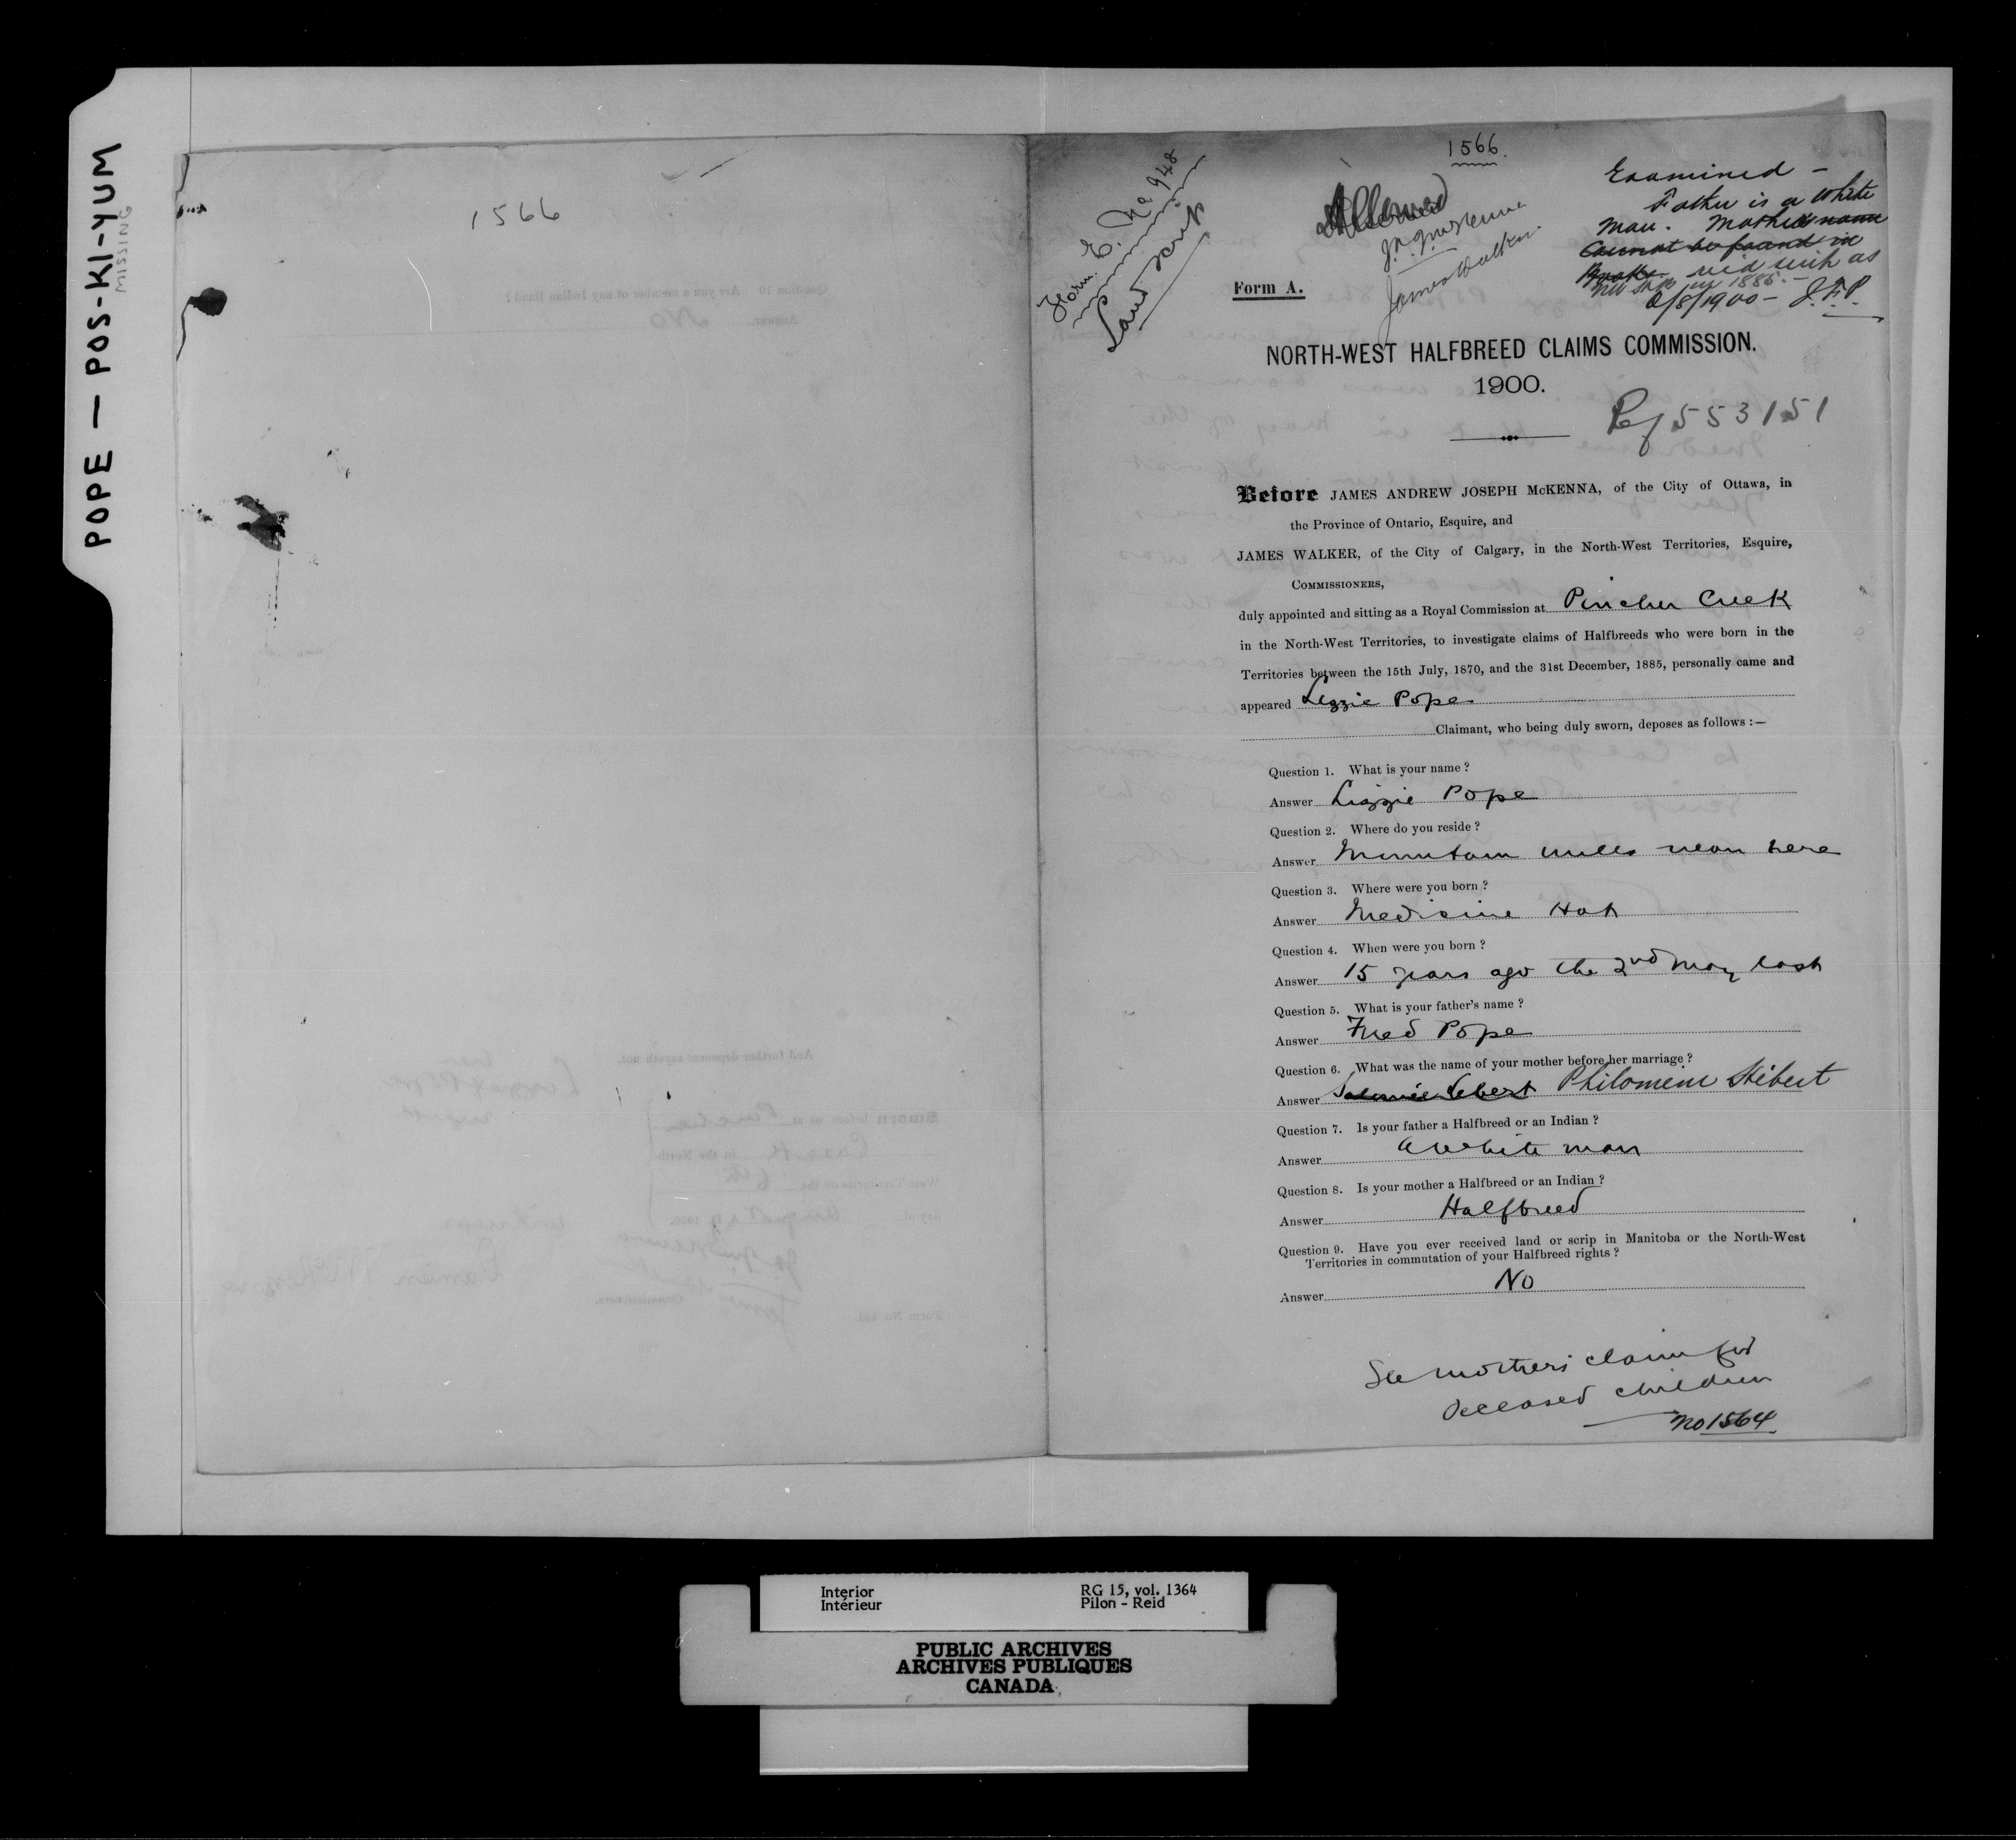 POPE — POS-KI-YUM
MISSING
1566
1566
Form E. No 948
Land Scrip
Allowed
J.A.J. McKenna
James Walker
Examined —
Father is a White
man. Mother's name
cannot be found in
rec'd scrip as
NW in 1885.—
6/8/1900 — J.F.P.
Form A.
NORTH-WEST HALFBREED CLAIMS COMMISSION.
1900.
Ref 553151
Before JAMES ANDREW JOSEPH McKENNA, of the City of Ottawa, in
the Province of Ontario, Esquire, and
JAMES WALKER, of the City of Calgary, in the North-West Territories, Esquire,
COMMISSIONERS,
duly appointed and sitting as a Royal Commission at Pincher Creek
in the North-West Territories, to investigate claims of Halfbreeds who were born in the
Territories between the 15th July, 1870, and the 31st December, 1885, personally came and
appeared Lizzie Pope
Claimant, who being duly sworn, deposes as follows :—
Question 1. What is your name ?
Answer Lizzie Pope
Question 2. Where do you reside ?
Answer Mountain mills near here
Question 3. Where were you born ?
Answer Medicine Hat
Question 4. When were you born ?
Answer 15 years ago the 2nd May last
Question 5. What is your father's name ?
Answer Fred Pope
Question 6. What was the name of your mother before her marriage ?
Answer Philomene Hébert
Question 7. Is your father a Halfbreed or an Indian ?
Answer A white man
Question 8. Is your mother a Halfbreed or an Indian ?
Answer Halfbreed
Question 9. Have you ever received land or scrip in Manitoba or the North-West
Territories in commutation of your Halfbreed rights ?
Answer No
See mothers claim for
deceased children
No 1564
Interior
Intérieur
RG 15, vol. 1364
Pilon - Reid
PUBLIC ARCHIVES
ARCHIVES PUBLIQUES
CANADA